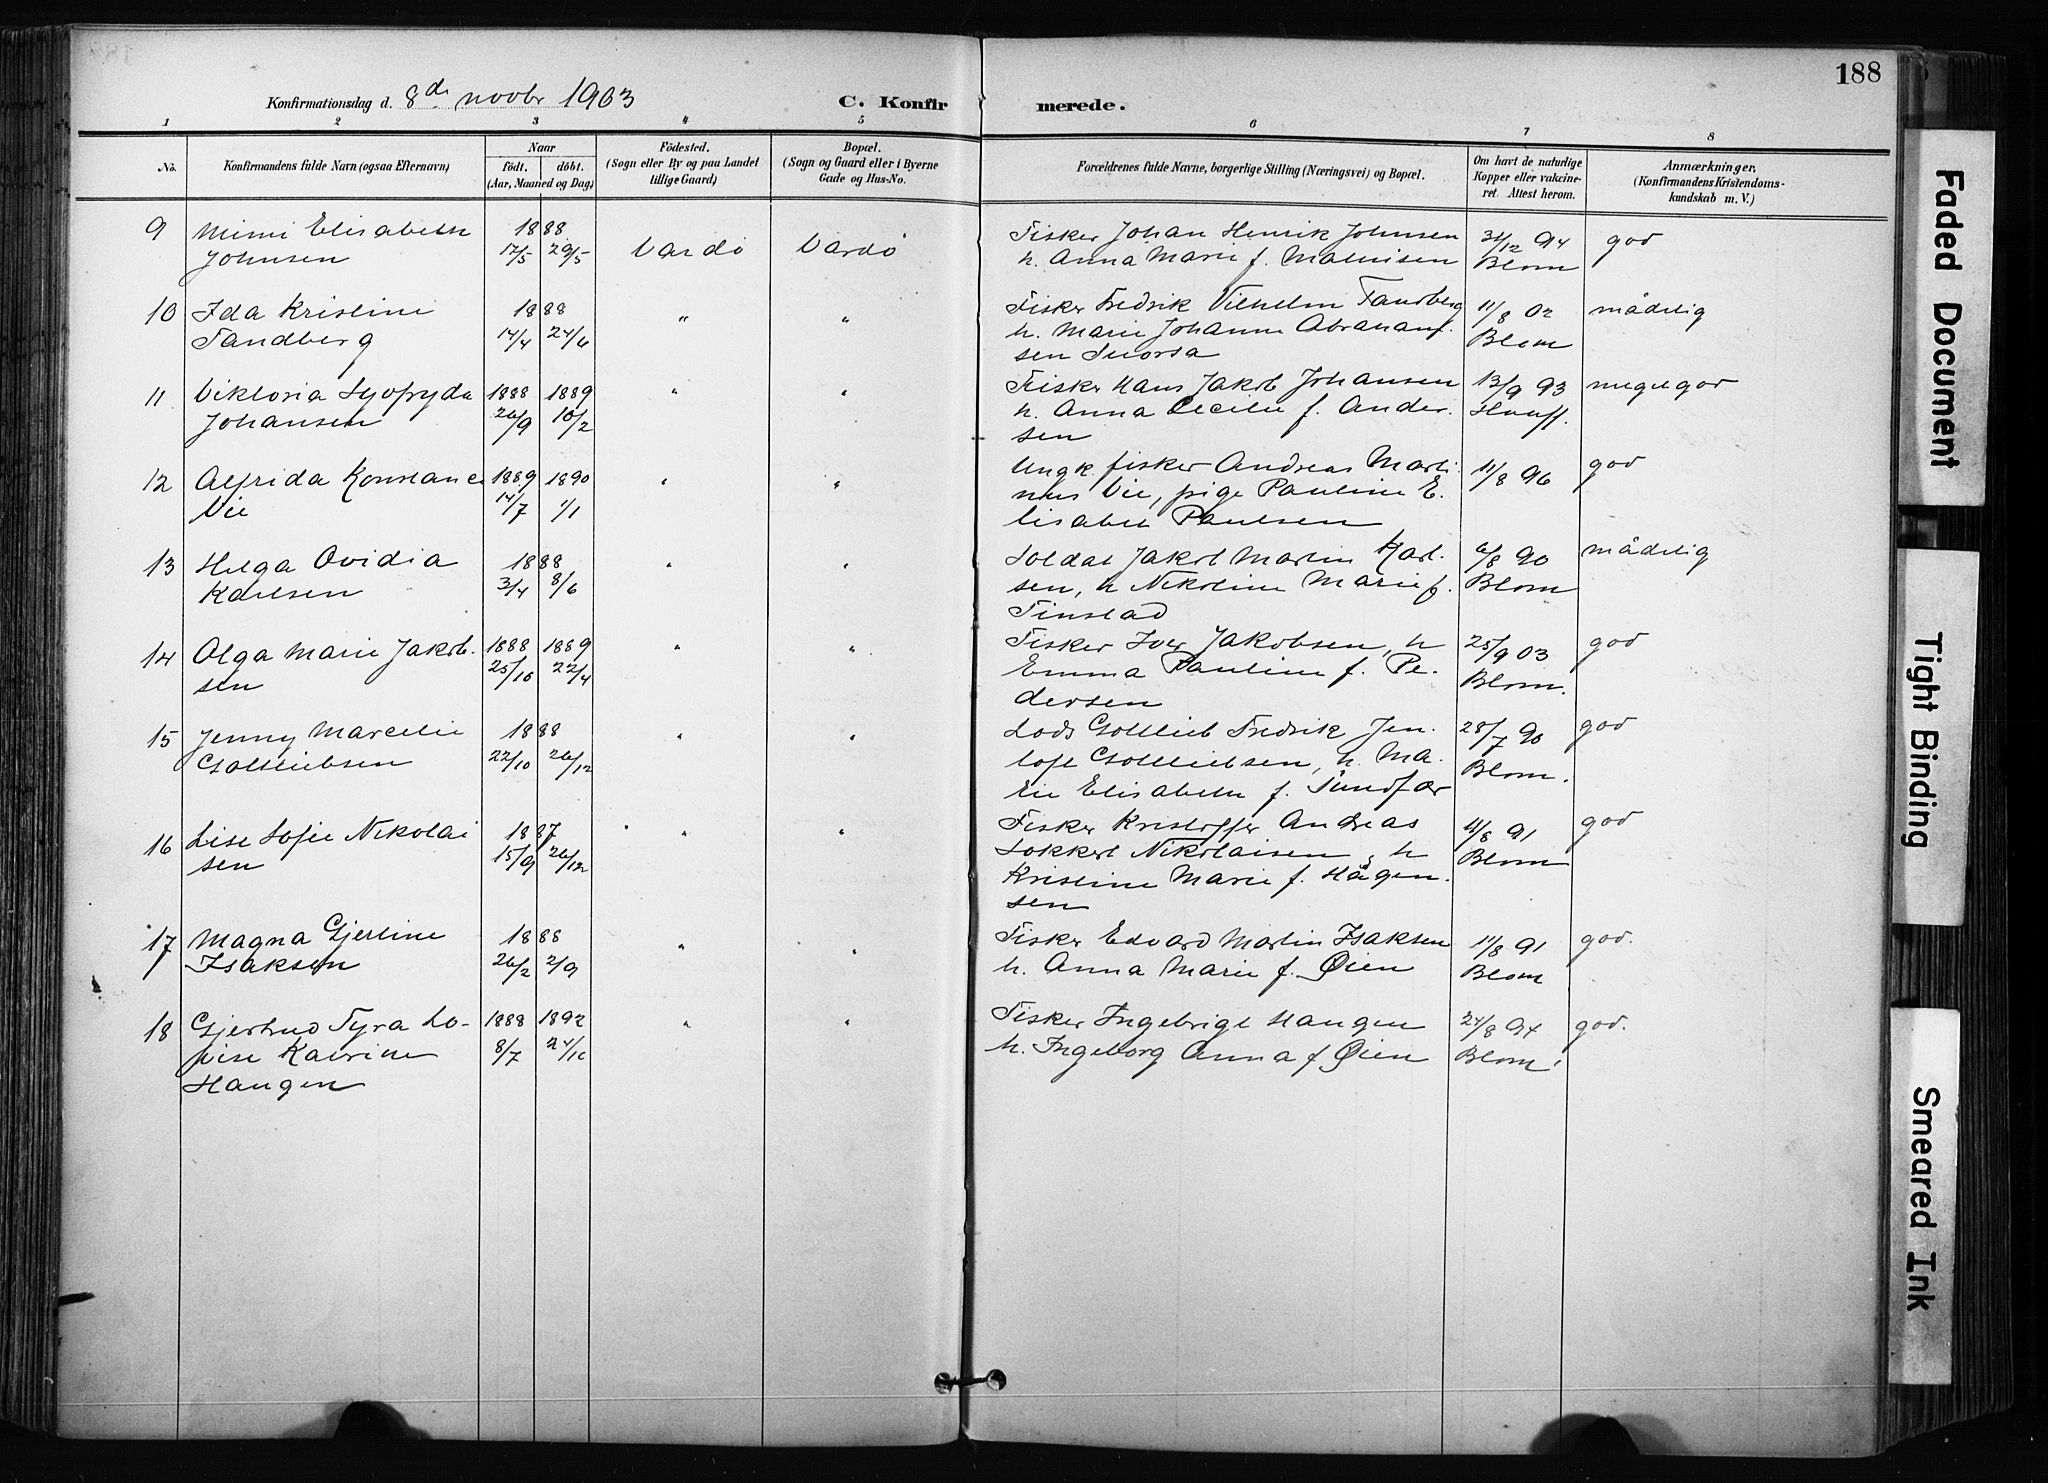 188
Konfirmationsdag d. 8de novbr 1903 C. Konfirmerede.
1 2 3 4 5 6 7 8
No. Konfirmandens fulde Navn (ogsaa Efternavn) Naar født. døbt. (Aar, Maaned og Dag) Fødested. (Sogn eller By og paa Landet tillige Gaard) Bopæl. (Sogn og Gaard eller i Byerne Gade og Hus-No. Forældrenes fulde Navne, borgerlige Stilling (Næringsvei) og Bopæl. Om havt de naturlige Kopper eller vakcineret. Attest herom. Anmærkninger, (Konfirmandens Kristendomskundskab m. V.)
9 Mimi Elisabeth 1888 Vardø Vardø Fisker Johan Henrik Johnsen 31/12 94 god
Johnsen 17/5 29/5 h. Anna Marie f. Mathisen Blom
10 Ida Kristine 1888 " " Fisker Fredrik Vilhelm Tandberg 11/8 02 mådelig
Tandberg 14/4 24/6 h. Marie Johanne Abraham- Blom
sen
11 Viktoria 1888 1889 " " Fisker Hans Jakob Johansen 13/9 93 meget god
Johansen 26/9 10/2 h. Anna Cecilie f. Ander-
sen
12 Alfrida Konstance 1889 1890 " " Ungk. fisker Andreas Marti- 11/8 96 god
Vie 14/7 1/1 nus Vie, pige Pauline E-
lisabet Paulsen
13 Helga Ovidia 1888 " " Soldat Jakob Martin Karl- 6/8 90 mådelig
Karlsen 3/4 8/6 sen, h Nikoline Marie f. Blom
Finstad
14 Olga Marie Jakob- 1888 1889 " " Fisker Iver Jakobsen, h 25/9 03 god
sen 25/10 22/4 Emma Pauline f. Pe- Blom.
dersen
15 Jenny Marcelie 1888 " " Lods Gottlieb Fredrik Jen- 28/7 90 god
Gottliebsen 22/10 26/12 toft Gottliebsen, h. Ma- Blom.
rie Elisabeth f. Sundfær
16 Lise Sofie Nikolai 1887 " " Fisker Kristoffer Andreas 11/8 91 god
sen 15/9 26/12 Lokkert Nikolaisen, h Blom
Kristine Marie f. Hågen-
sen
17 Magna Gjertine 1888 " " Fisker Edvard Martin Isaksen 11/8 91 god.
Isaksen 26/2 2/9 h. Anna Marie f. Øien Blom
18 Gjertrud Tyra Lo- 1888 1892 " " Fisker Ingebrigt Haugen 24/8 94 god.
vise Katrine 8/7 24/10 h. Ingeborg Anna f Øien Blom.
Haugen
Faded Document
Tight Binding
Smeared Ink